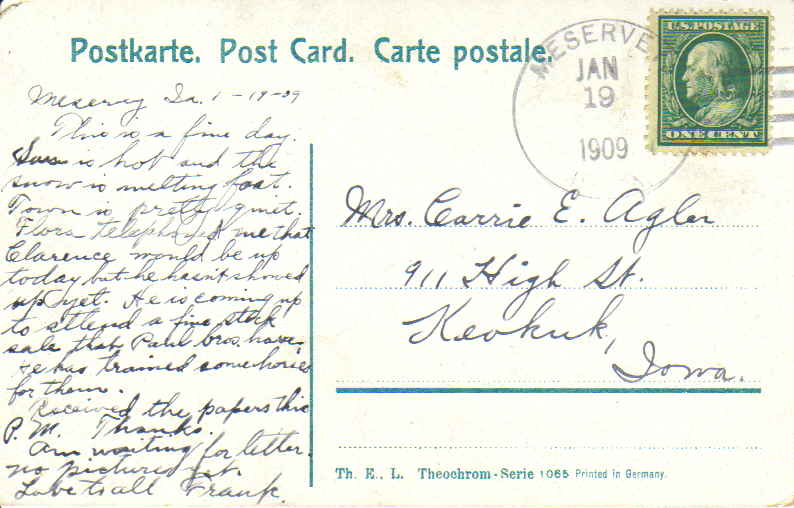 Postkarte. Post Card. Carte postale.
MESERVEY
JAN
19
1909
U.S. POSTAGE
ONE CENT
Meservey Ia. 1-19-09
This is a fine day.
Sun is hot and the
snow is melting fast.
Town is pretty quiet.
Flora telephoned me that
Clarence would be up
today but he hasn't showed
up yet. He is coming up
to attend a fine stock
sale that Paul bros. have.
He has trained some horses
for them.
Received the papers this
P.M. Thanks.
Am waiting for letter.
no pictures yet.
Love to all Frank.
Mrs. Carrie E. Agler
911 High St.
Keokuk,
Iowa.
Th. E. L. Theochrom-Serie 1065 Printed in Germany.